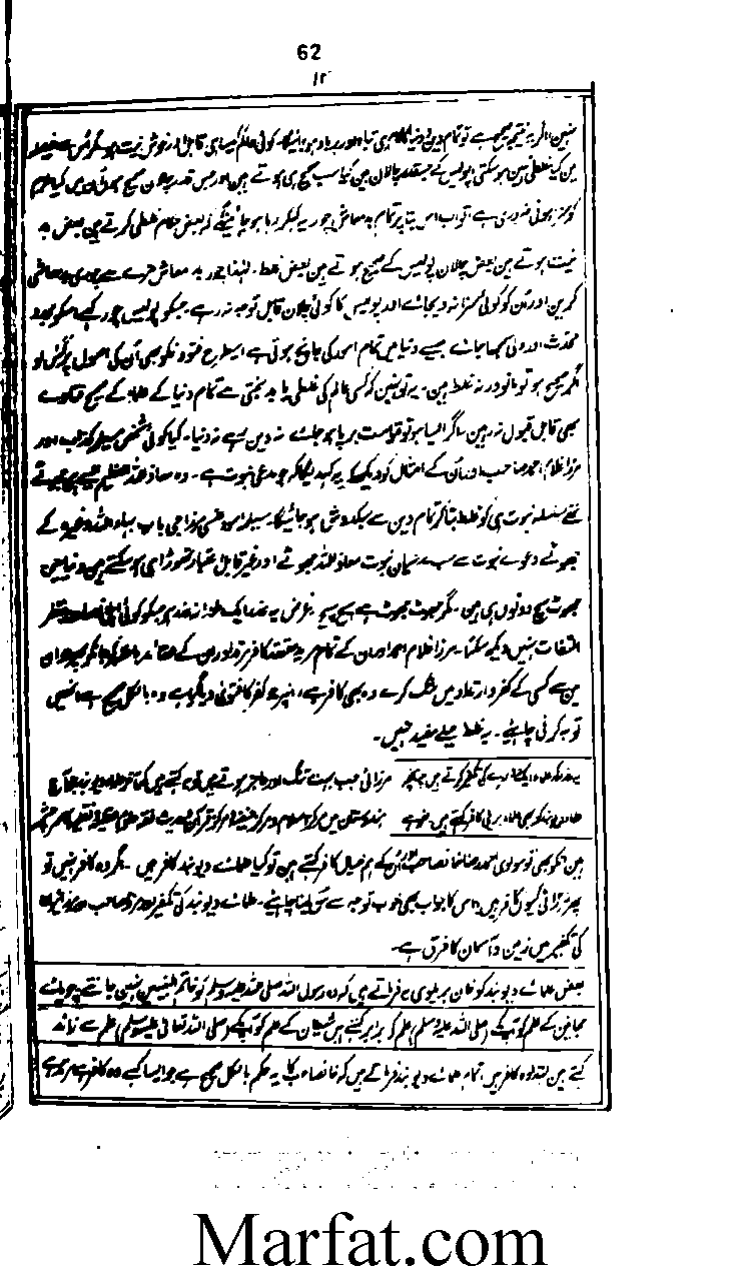 62
۱۲
نہیں اگر یہ نتیجہ صحیح ہے تو تمام دین و دنیا کا کام ہی تباہ اور برباد ہو جائیگا۔ کوئی حاکم کیسا ہی قابل اور خوش نیت ہو مگر
میں کیا غلطی نہیں ہو سکتی پولیس کے جسقدر چالان ہیں کیا سب صحیح ہی ہوتے ہیں اور جس قدر چالان صحیح ہوں ان میں کیا
کو سزا ہونی ضروری ہے تو اب اس بنا پر تمام بدمعاش چور یہ کہکر رہا ہو جائینگے کہ بعض حکام غلطی کرتے ہیں بعض بد
نیت ہوتے ہیں بعض چالان پولیس کے صحیح ہوتے ہیں بعض غلط۔ لہذا چور بدمعاش مزے سے چوری بدمعاشی
کریں اور ان کو کوئی سزا نہ دیجائے اور پولیس کا کوئی چالان قابل توجہ نہ رہے۔ جسکو پولیس چور کہے اسکو
محدث اور ولی سمجھا جائے جیسے دنیا میں تمام امور کی جانچ ہوتی ہے اسیطرح فتووں کو بھی ان کی اصول پر
اگر صحیح ہو تو مانو ورنہ غلط ہیں۔ یہ تو نہیں کہ کسی عالم کی غلطی یا بدبختی سے تمام دنیا کے علماء کے صحیح فتوے
بھی قابل قبول نہ رہیں۔ اگر ایسا ہو تو قیامت برپا ہو جائے نہ دین رہے نہ دنیا۔ کیا کوئی شخص مسیلمہ کذاب اور
مرزا غلام احمد صاحب اور ان کے امثال کو دیکھ کر یہ کہدیگا کہ جو مدعی نبوت ہے۔ وہ معاذ اللہ
سلسلہ نبوت ہی کو غلط بتا کر تمام دین سے سبکدوش ہو جائیگا۔ مسیلمہ اسود عنسی مرزا جی باب بہاء اللہ وغیرہ کے
جھوٹے دعوے نبوت سے سب مدعیان نبوت معاذ اللہ جھوٹے اور غیر قابل اعتبار تھوڑا ہی ہو سکتے ہیں دنیا میں
جھوٹ سچ دونوں ہی ہیں۔ مگر جھوٹ جھوٹ ہے سچ سچ۔ غرض یہ عذر ایک
التفات نہیں دیکھ سکتا۔ مرزا غلام احمد اور ان کے تمام مرید معتقد کافر مرتد اور ان کے عقائد
میں سے کسی کے کفر و ارتداد میں شک کرے وہ بھی کافر ہے، انپر جو کفر کا فتوی دیا گیا ہے وہ بالکل صحیح ہے انہیں
توبہ کرنی چاہیے۔ یہ غلط حیلے مفید نہیں۔
مرزائی جب بہت تنگ اور عاجز ہوتے ہیں تو کہتے ہیں کہ
علماء دیوبند کو بھی علماء بریلی کافر کہتے ہیں ہندوستان میں مرکز اسلام و مرکز حنفیہ کرام
ہیں انکو بھی تو مولوی احمد رضا خانصاحب اور ان کے ہم خیال کافر کہتے ہیں تو کیا علمائے دیوبند کافر ہیں۔ اگر وہ کافر نہیں تو
پھر مرزائی کیوں کافر ہیں، اس کا جواب بھی خوب توجہ سے سن لینا چاہئے۔ علمائے دیوبند کی تکفیر اور مرزا صاحب اور
کی تکفیر میں زمین و آسمان کا فرق ہے۔
بعض علمائے دیوبند کو خان بریلوی یہ فرماتے ہیں کہ وہ رسول اللہ صلی اللہ علیہ وسلم کو خاتم النبیین نہیں جانتے چوپائے
مجانین کے علم کو آپکے (صلی اللہ علیہ وسلم) علم کے برابر کہتے ہیں شیطان کے علم کو آپکے (صلی اللہ تعالی علیہ وسلم) علم سے زائد
کہتے ہیں لہذا وہ کافر ہیں، تمام علمائے دیوبند فرماتے ہیں کہ خانصاحب کا یہ حکم بالکل صحیح ہے جو ایسا کہے وہ کافر ہے مرتد ہے
Marfat.com